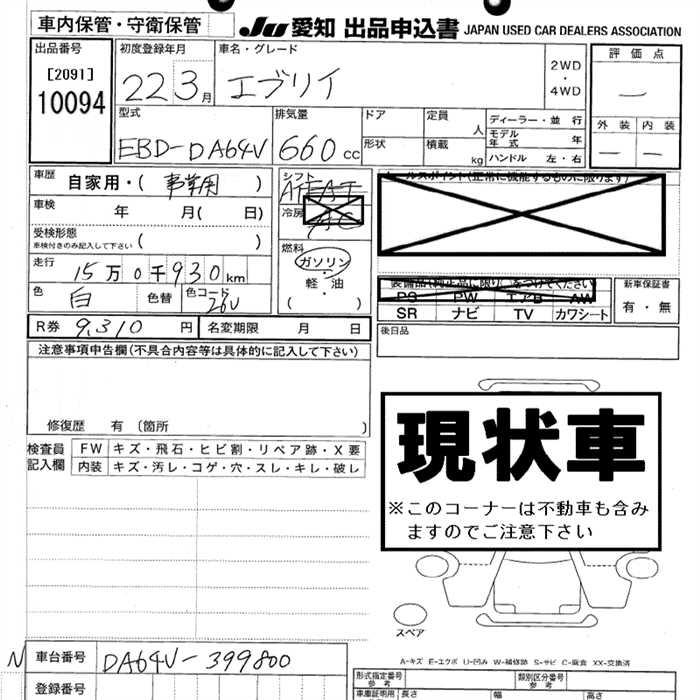 車内保管・守衛保管 JU 愛知 出品申込書 JAPAN USED CAR DEALERS ASSOCIATION
出品番号 [2091] 10094
初度登録年月 22 3月
車名・グレード エブリイ
2WD・4WD
評価点 一
外装 内装
— —
型式 EBD-DA64V
排気量 660cc
ドア
形状
定員 人
積載 kg
ディーラー・並行
モデル年式 年
ハンドル 左・右
車歴 自家用・(事業用)
シフト
冷房
車検 年 月(日)
受検形態
車検付きのみ記入して下さい ( )
走行 15万0千930km
燃料 ガソリン・軽油
( )
色 白 色替 色コード 26U
セールスポイント(正常に機能するものに限ります)
装備品(純正品に限り)をつけてください
PS PW エアB AW
SR ナビ TV カワシート
新車保証書
有・無
R券 9,310円 名変期限 月 日
後日品
注意事項申告欄(不具合内容等は具体的に記入して下さい)
修復歴 有 〔箇所 〕
検査員記入欄
FW キズ・飛石・ヒビ割・リペア跡・X要
内装 キズ・汚レ・コゲ・穴・スレ・キレ・破レ
現状車
※このコーナーは不動車も含み
ますのでご注意下さい
スペア
A-キズ E-エクボ U-凹み W-補修跡 S-サビ C-腐食 XX-交換済
N 車台番号 DA64V-399800
登録番号
型式指定番号 参考
類別区分番号 参考
車庫証明用 参考 長さ 幅 高さ